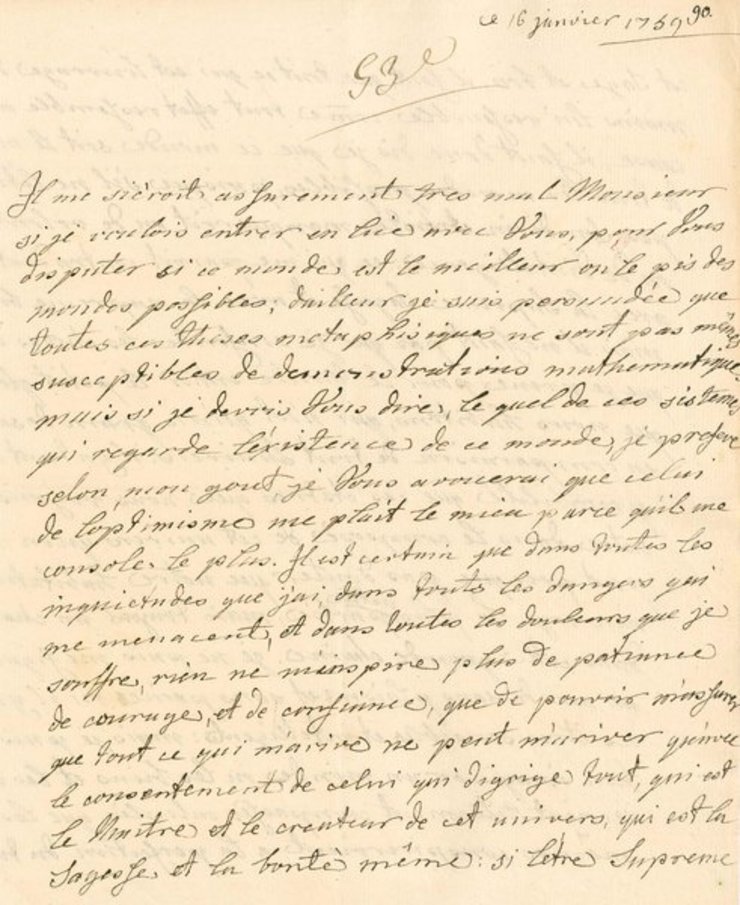 ce 16 janvier 1759
90.
G 3e
Il me siéroit assurement tres mal Monsieur
si je voulois entrer en lice avec Vous, pour Vous
disputer si ce monde est le meilleur ou le pis des
mondes possibles, dailleur je suis persuadée que
toutes ces theses metaphisiques ne sont pas mêmes
susceptibles de demonstrations mathematiques
mais si je devois Vous dire, le quel de ces sistemes
qui regarde l'éxistence de ce monde, je prefere
selon mon gout je Vous avouerai que celui
de loptimisme me plait le mieu parce quil me
console le plus. Il est certain que dans toutes les
inquietudes que j'ai, dans touts les dangers qui
me menacent, et dans toutes les douleurs que je
souffre, rien ne m'inspire plus de patience
de courage, et de confiance, que de pouvoir m'assurer
que tout ce qui m'arive ne peut m'ariver qu'avec
le consentement de celui qui digrige tout, qui est
le Maitre et le createur de cet univers, qui est la
sagesse, et la bonté même: si létre Supreme